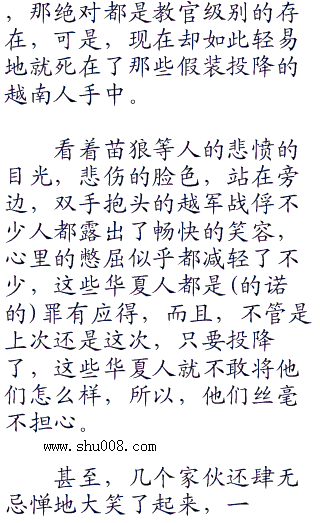 ，那绝对都是教官级别的存
在，可是，现在却如此轻易
地就死在了那些假装投降的
越南人手中。
看着苗狼等人的悲愤的
目光，悲伤的脸色，站在旁
边，双手抱头的越军战俘不
少人都露出了畅快的笑容，
心里的憋屈似乎都减轻了不
少，这些华夏人都是(的诺
的)罪有应得，而且，不管是
上次还是这次，只要投降
了，这些华夏人就不敢将他
们怎么样，所以，他们丝毫
不担心。
www.shu008.com
甚至，几个家伙还肆无
忌惮地大笑了起来，一